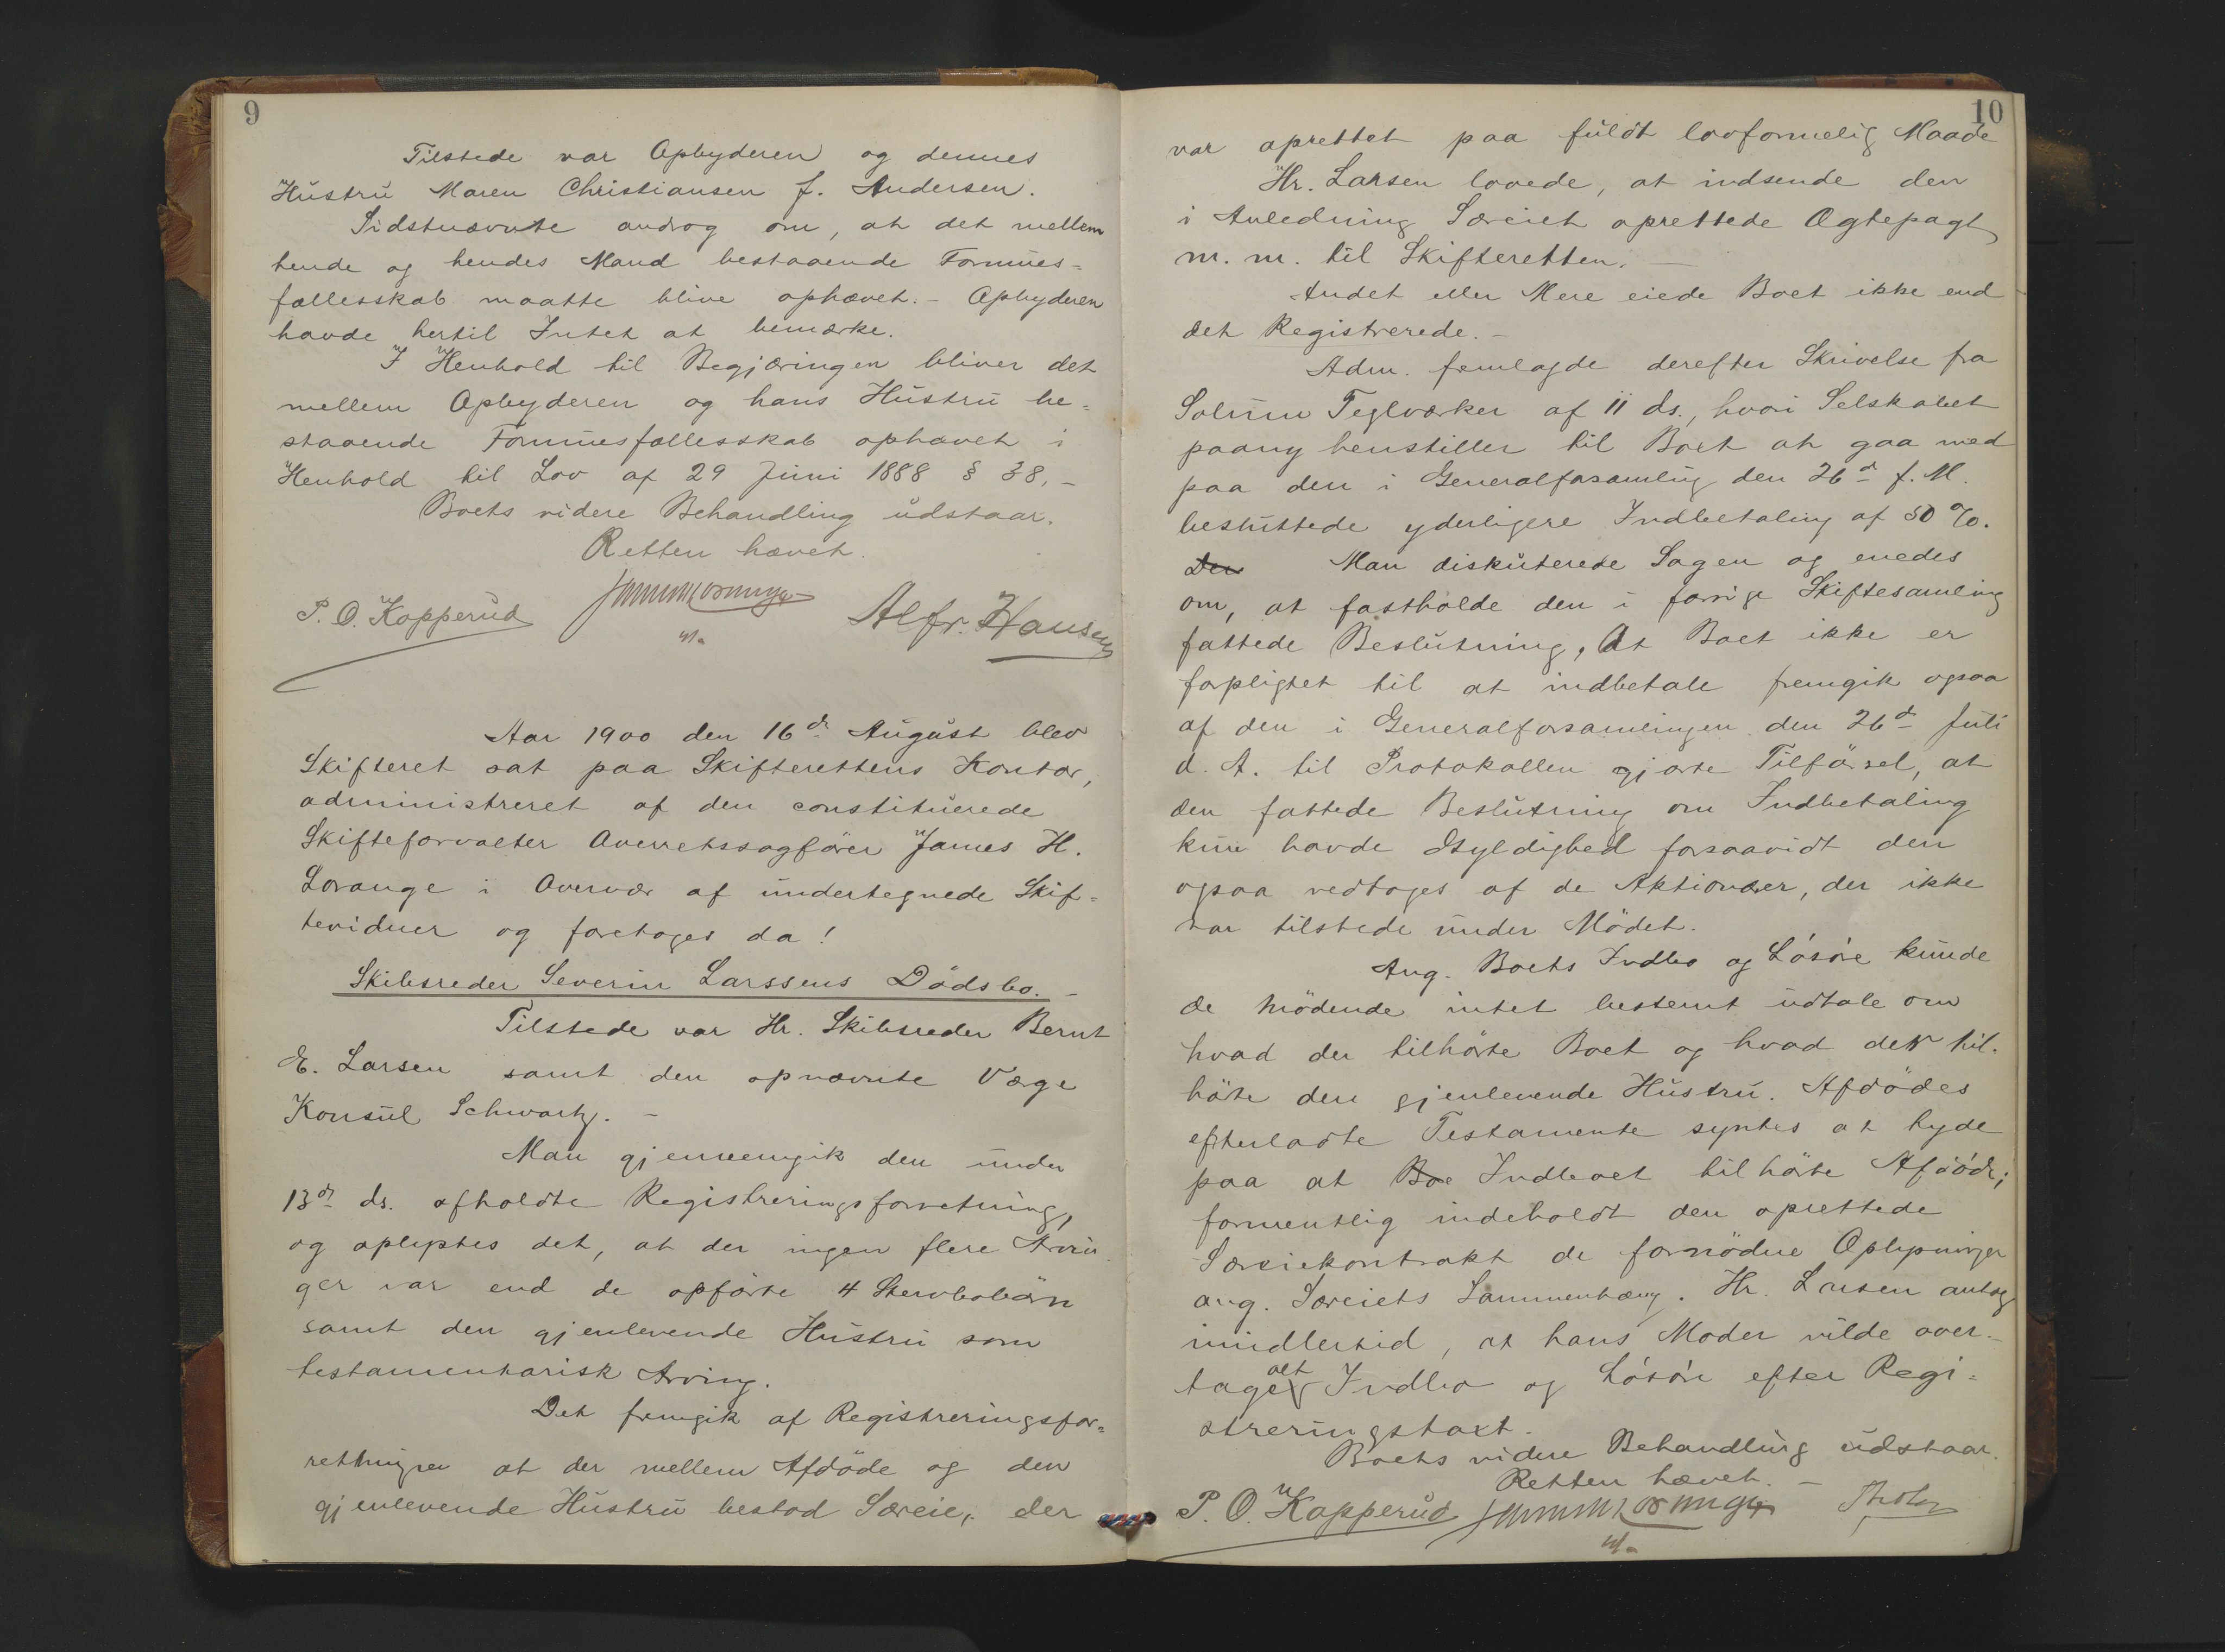 9
Tilstede var Opbyderen og dennes
Hustru Maren Christiansen f. Andersen.
Sidstnævnte androg om, at det mellem
hende og hendes Mand bestaaende Formues=
fællesskab maatte blive ophævet. – Opbyderen
havde hertil Intet at bemærke.
I Henhold til Begjæringen bliver det
mellem Opbyderen og hans Hustru be=
staaende Formuesfællesskab ophævet i
Henhold til Lov af 29 Juni 1888 § 38. –
Boets videre Behandling udstaar.
Retten hævet.
P. O. Kopperud
Alfr. Hansen
Aar 1900 den 16de August blev
Skifteret sat paa Skifterettens Kontor,
administreret af den constituerede
Skifteforvalter Overretssagfører James H.
Lorange i Overvær af undertegnede Skif=
tevidner og foretoges da!
Skibsreder Severin Larssens Dödsbo. –
Tilstede var Hr. Skibsreder Bernt
E. Larsen samt den opnævnte Værge
Konsul Schwartz. –
Man gjennemgik den under
13de ds. afholdte Registreringsforretning,
og oplystes det, at der ingen flere Arvin
ger var end de opförte 4 Stervbobörn
samt den gjenlevende Hustru som
testamentarisk Arving.
Det fremgik af Registreringsfor=
retningen at der mellem Afdöde og den
gjenlevende Hustru bestod Særeie, der
10
var oprettet paa fuldt lovformelig Maade
Hr. Larsen lovede, at indsende den
i Anledning Særeiet oprettede Ægtepagt
m. m. til Skifteretten. –
Andet eller Mere eiede Boet ikke end
det Registrerede. –
Adm. fremlagde derefter Skrivelse fra
Solum Teglværker af 11 ds., hvori Selskabet
paany henstiller til Boet at gaa med
paa den i Generalforsamling den 26de f. M.
besluttede yderligere Indbetaling af 50 %.
Der Man diskuterede Sagen og enedes
om, at fastholde den i forrige Skiftesamling
fattede Beslutning, At Boet ikke er
forpligtet til at indbetale fremgik ogsaa
af den i Generalforsamlingen den 26de Juli
d. A. til Protokollen gjorte Tilförsel, at
den fattede Beslutning om Indbetaling
kun havde Gyldighed forsaavidt den
ogsaa vedtoges af de Aktionærer, der ikke
var tilstede under Mödet.
Ang. Boets Indbo og Lösöre kunde
de mödende intet bestemt udtale om
hvad der tilhörte Boet og hvad der til.
hörte den gjenlevende Hustru. Afdödes
efterladte Testamente syntes at tyde
paa at Boe Indboet tilhörte Afdöde;
formentlig indeholdt den oprettede
Særeiekontrakt de fornödne Oplysninger
ang. Særeiets Sammenhæng. Hr. Larsen antog
imidlertid, at hans Moder vilde over-
tage alt Indbo og Lösöre efter Regi=
streringstaxt.
Boets videre Behandling udstaar.
Retten hævet. –
P. O. Kopperud